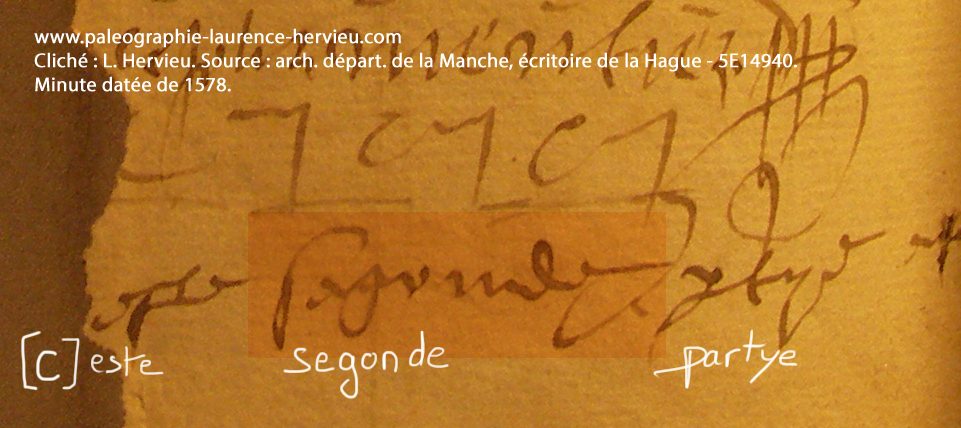 www.paleographie-laurence-hervieu.com
Cliché : L. Hervieu. Source : arch. départ. de la Manche, écritoire de la Hague - 5E14940.
Minute datée de 1578.
este segonde ptye
[C]este segonde partye